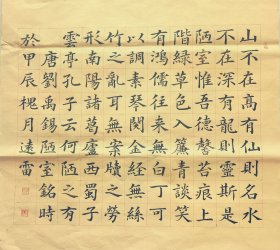 山不在高有仙則名水
不在深有龍則靈斯是
陋室惟吾德馨苔痕上
階綠草色入簾青談笑
有鴻儒往來無白丁可
以調素琴閱金經無絲
竹之亂耳無案牘之勞
形南陽諸葛廬西蜀子
雲亭孔子云何陋之有
唐劉禹錫陋室銘時
於甲辰槐月遠雷